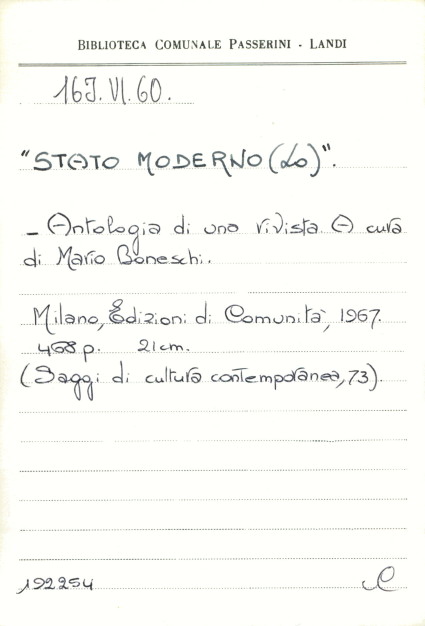 BIBLIOTECA COMUNALE PASSERINI - LANDI
16J.VI.60.
"STATO MODERNO (Lo)".
- Antologia di una rivista. A cura
di Mario Boneschi.
Milano, Edizioni di Comunità, 1967.
468 p. 21 cm.
(Saggi di cultura contemporanea, 73).
192254